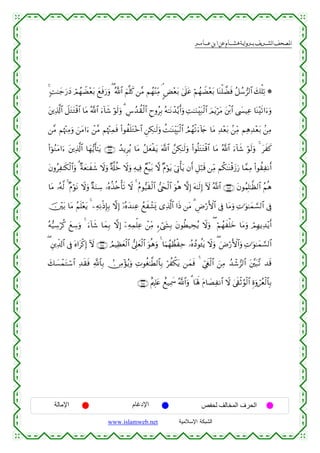 المصحف الشريف برواية هشام عن ابن عامر
۞ تِلْكَ ٱلرُّسُلُ فَضَّلْنَا بَعْضَهُمْ عَلَىٰ بَعْضٍ ۘ مِّنْهُم مَّن كَلَّمَ ٱللَّهُ ۖ وَرَفَعَ بَعْضَهُمْ دَرَجَٰتٍ ۚ
وَءَاتَيْنَا عِيسَى ٱبْنَ مَرْيَمَ ٱلْبَيِّنَٰتِ وَأَيَّدْنَٰهُ بِرُوحِ ٱلْقُدُسِ ۗ وَلَوْ شَآءَ ٱللَّهُ مَا ٱقْتَتَلَ ٱلَّذِينَ
مِنۢ بَعْدِهِم مِّنۢ بَعْدِ مَا جَآءَتْهُمُ ٱلْبَيِّنَٰتُ وَلَٰكِنِ ٱخْتَلَفُوا۟ فَمِنْهُم مَّنْ ءَامَنَ وَمِنْهُم مَّن
كَفَرَ ۚ وَلَوْ شَآءَ ٱللَّهُ مَا ٱقْتَتَلُوا۟ وَلَٰكِنَّ ٱللَّهَ يَفْعَلُ مَا يُرِيدُ يَٰٓأَيُّهَا ٱلَّذِينَ ءَامَنُوٓا۟
أَنفِقُوا۟ مِمَّا رَزَقْنَٰكُم مِّن قَبْلِ أَن يَأْتِىَ يَوْمٌ لَّا بَيْعٌ فِيهِ وَلَا خُلَّةٌ وَلَا شَفَٰعَةٌ ۗ وَٱلْكَٰفِرُونَ
هُمُ ٱلظَّٰلِمُونَ ٱللَّهُ لَآ إِلَٰهَ إِلَّا هُوَ ٱلْحَىُّ ٱلْقَيُّومُ ۚ لَا تَأْخُذُهُۥ سِنَةٌ وَلَا نَوْمٌ ۚ لَّهُۥ مَا
فِى ٱلسَّمَٰوَٰتِ وَمَا فِى ٱلْأَرْضِ ۗ مَن ذَا ٱلَّذِى يَشْفَعُ عِندَهُۥٓ إِلَّا بِإِذْنِهِۦ ۚ يَعْلَمُ مَا بَيْنَ
أَيْدِيهِمْ وَمَا خَلْفَهُمْ ۖ وَلَا يُحِيطُونَ بِشَىْءٍ مِّنْ عِلْمِهِۦٓ إِلَّا بِمَا شَآءَ ۚ وَسِعَ كُرْسِيُّهُ
ٱلسَّمَٰوَٰتِ وَٱلْأَرْضَ ۖ وَلَا يَـُٔودُهُۥ حِفْظُهُمَا ۚ وَهُوَ ٱلْعَلِىُّ ٱلْعَظِيمُ لَآ إِكْرَاهَ فِى ٱلدِّينِ ۖ
قَد تَّبَيَّنَ ٱلرُّشْدُ مِنَ ٱلْغَىِّ ۚ فَمَن يَكْفُرْ بِٱلطَّٰغُوتِ وَيُؤْمِنۢ بِٱللَّهِ فَقَدِ ٱسْتَمْسَكَ
بِٱلْعُرْوَةِ ٱلْوُثْقَىٰ لَا ٱنفِصَامَ لَهَا ۗ وَٱللَّهُ سَمِيعٌ عَلِيمٌ
الحرف المخالف لحفص الإدغام الإمالة
الشبكة الإسلامية www.islamweb.net